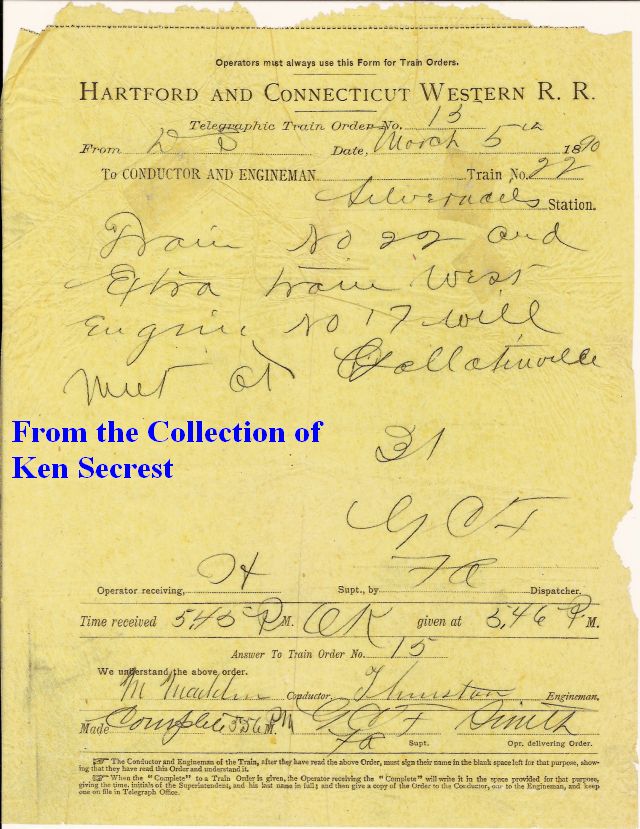 Operators must always use this Form for Train Orders.
HARTFORD AND CONNECTICUT WESTERN R. R.
Telegraphic Train Order No. 15
From D S Date, March 5th 1890
To CONDUCTOR AND ENGINEMAN Train No. 22
Silvernails Station.
Train No 22 and
Extra train West
Engine No 17 will
meet at Gallatinville
31
G C F
Fa
Operator receiving, H Supt., by Dispatcher.
Time received 5,45 P M. OK given at 5,46 P. M.
ANSWER TO TRAIN ORDER No. 15
We understand the above order.
Conductor, Thurston Engineman.
Made Complete 5 56 PM M. G C F Smith
Fa Supt. Opr. delivering Order.
☞ The Conductor and Engineman of the Train, after they have read the above Order, must sign their name in the blank space left for that purpose, show-
ing that they have read this Order and understand it.
☞ When the "Complete" to a Train Order is given, the Operator receiving the "Complete" will write it in the space provided for that purpose,
giving the time, initials of the Superintendent, and his last name in full; and then give a copy of the Order to the Conductor, one to the Engineman, and keep
one on file in Telegraph Office.
From the Collection of
Ken Secrest